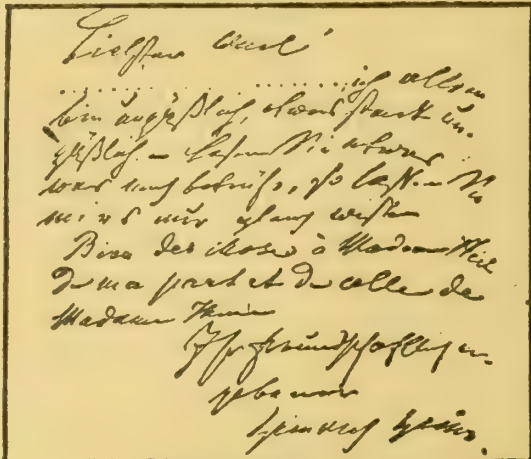 Liebster Weil!
.................. ich allein
bin unpäßlich, etwas stark un-
päßlich. Sie etwas
was mich betrifft, so lassen Sie
mirs nur gleich wissen
Bien des choses à Madame Weil
De ma part et De celle de
Madame Heine
Ihr freundschaftlichen
gebener
Heinrich Heine.